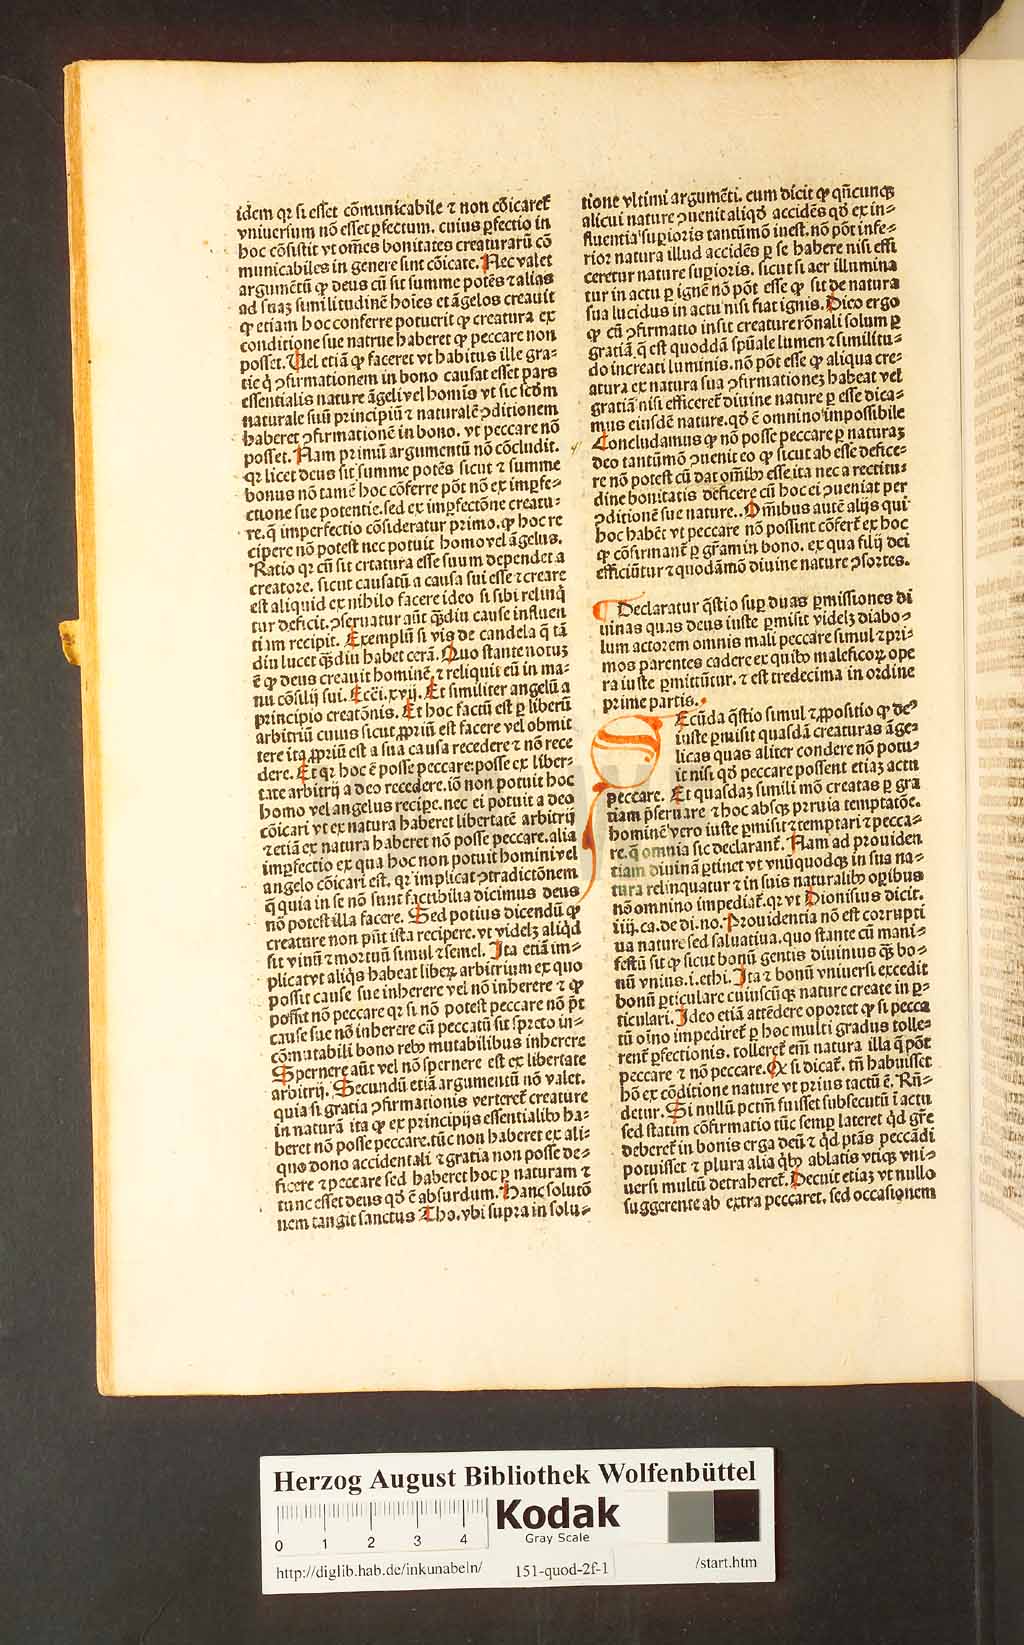 idem qꝛ si esset cōmunicabile ⁊ non cōicaret̉
vniuersum nō esset ꝑfectum. cuius ꝑfectio in
hoc cōsistit vt om̄es bonitates creaturarū cō
municabiles in genere sint cōicate. Nec valet
argumētū ꝙ deus cū sit summe potēs ⁊ alias
ad suaꝫ similitudinē hoies et āgelos creauit
ꝙ etiam hoc conferre potuerit ꝙ creatura ex
conditione sue natrue haberet ꝙ peccare non
posset. Uel etiā ꝙ faceret vt habitus ille gra⸗
tie q̄ ꝯfirmationem in bono causat esset pars
essentialis nature āgeli vel homīs vt sic scd̄m
naturale suū principiū ⁊ naturalē ꝯditionem
haberet ꝯfirmationē in bono. vt peccare nō
posset. Nam primū argumentū nō cōcludit.
qꝛ licet deus sit summe potēs sicut ⁊ summe
bonus nō tamē hoc cōferre pōt nō ex imꝑfe⸗
ctione sue potentie. sed ex imꝑfectōne creatu⸗
re. q̄ imperfectio cōsideratur primo. ꝙ hoc re
cipere nō potest nec potuit homo vel āgelus.
Ratio qꝛ cū sit crtatura esse suum dependet a
creatore. sicut causatū a causa sui esse ⁊ creare
est aliquid ex nihilo facere ideo si sibi relinq̄
tur deficit. ꝯseruatur aūt qꝫdiu cause influen
tiam recipit. Exemplū si vis de candela q̄ tā
diu lucet qꝫdiu habet cerā. Quo stante notuꝫ
ē ꝙ deus creauit hominē. ⁊ reliquit eū in ma⸗
nu cōsilij sui. Ecc̄i. xvij. Et similiter angelū a
principio creatōnis. Et hoc factū est ꝑ liberū
arbitriū cuius sicut ꝓpriū est facere vel obmit
tere ita ꝓpriū est a sua causa recedere ⁊ nō rece
dere. Et qꝛ hoc ē posse peccare: posse ex liber⸗
tate arbitrij a deo recedere. iō non potuit hoc
homo vel angelus recipe. nec ei potuit a deo
cōicari vt ex natura haberet libertatē arbitrij
⁊ etiā ex natura haberet nō posse peccare. alia
imꝑfectio ex qua hoc non potuit homini vel
angelo cōicari est. qꝛ implicat ꝯtradictōnem
q̄ quia in se nō sunt factibilia dicimus deus
nō potest illa facere. Sed potius dicendū ꝙ
creature non pn̄t ista recipere. vt videlꝫ aliqd̄
sit viuū ⁊ mortuū simul ⁊ semel. Ita etiā im⸗
plicat vt aliqͥs habeat liberꝫ arbitrium ex quo
possit cause sue inherere vel nō inherere ⁊ ꝙ
possit nō peccare qꝛ si nō potest peccare nō p̄t
cause sue nō inherere cū peccatū sit spreto in⸗
cōmutabili bono rebꝰ mutabilibus inherere
Spernere aūt vel nō spernere est ex libertate
arbitrij. Secundū etiā argumentū nō valet.
quia si gratia ꝯfirmationis verteret̉ creature
in naturā ita ꝙ ex principijs essentialibꝰ ha⸗
beret nō posse peccare. tūc non haberet ex ali⸗
quo dono accidentali ⁊ gratia non posse de⸗
ficere ⁊ peccare sed haberet hoc ꝑ naturam ⁊
tunc esset deus qd̄ ē absurdum. Hanc solutō
nem tangit sanctus Tho. vbi supra in solu⸗
tione vltimi argumēti. cum dicit ꝙ qn̄cunqꝫ
alicui nature ꝯuenit aliqd̄ accidēs qd̄ ex in⸗
fluentia suꝑioris tantūmō inest. nō pōt infe⸗
rior natura illud accidēs ꝑ se habere nisi effi
ceretur nature suꝑioris. sicut si aer illumina
tur in actu ꝑ ignē nō pōt esse ꝙ sit de natura
sua lucidus in actu nisi fiat ignis. Dico ergo
ꝙ cū ꝯfirmatio insit creature rōnali solum ꝑ
gratiā q̄ est quoddā spūale lumen ⁊ similitu⸗
do increati luminis. nō pōt esse ꝙ aliqua cre⸗
atura ex natura sua ꝯfirmationeꝫ habeat vel
gratiā nisi efficeret̉ diuine nature ꝑ esse dica⸗
mus eiusdē nature. qd̄ ē omnino impossibile
Concludamus ꝙ nō posse peccare ꝑ naturaꝫ
deo tantūmō ꝯuenit eo ꝙ sicut ab esse defice⸗
re nō potest cū dat om̄ibꝰ esse ita nec a rectitu⸗
dine bonitatis deficere cū hoc ei ꝯueniat per
ꝯditionē sue nature.. Omnibus autē alijs qui
hoc habēt vt peccare nō possint cōfert̉ ex hoc
ꝙ cōfirmant̉ ꝑ gr̄am in bono. ex qua filij dei
efficiūtur ⁊ quodāmō diuine nature ꝯsortes.
Declaratur q̄stio suꝑ duas ꝑmissiones di
uinas quas deus iuste ꝑmisit videlꝫ diabo⸗
lum actorem omnis mali peccare simul ⁊ pri⸗
mos parentes cadere ex quibꝰ maleficoꝝ ope
ra iuste ꝑmittūtur. ⁊ est tredecima in ordine
prime partis.
SEcūda q̄stio simul ⁊ ꝓpositio ꝙ deꝰ
iuste ꝑmisit quasdā creaturas āge⸗
licas quas aliter condere nō potu⸗
it nisi qd̄ peccare possent etiaꝫ actu
peccare. Et quasdaꝫ simili mō creatas ꝑ gra
tiam p̄seruare ⁊ hoc absqꝫ p̄uia temptatōe.
hominē vero iuste ꝑmisit ⁊ temptari ⁊ pecca⸗
re. q̄ omnia sic declarant̉. Nam ad prouiden
tiam diuinā ꝑtinet vt vnūquodqꝫ in sua na⸗
tura relinquatur ⁊ in suis naturalibꝰ oꝑibus
nō omnino impediat̉. qꝛ vt Dionisius dicit.
iiij. ca. de di. no. Prouidentia nō est corrupti
ua nature sed saluatiua. quo stante cū mani⸗
festū sit ꝙ sicut bonū gentis diuinius qꝫ bo⸗
nū vnius. i. ethi. Ita ⁊ bonū vniuersi excedit
bonū ꝑticulare cuiuscūqꝫ nature create in ꝑ⸗
ticulari. Ideo etiā attēdere oportet ꝙ si pecca
tū oīno impediret̉ ꝑ hoc multi gradus tolle⸗
rent̉ ꝑfectionis. tolleret̉ em̄ natura illa q̄ pōt
peccare ⁊ nō peccare. Qꝫ si dicat̉. tn̄ habuisset
hō ex cōditione nature vt prius tactū ē. Rn̄⸗
detur. Si nullū pctm̄ fuisset subsecutū ī actu
sed statim cōfirmatio tūc semꝑ lateret qd̄ gr̄e
deberet̉ in bonis erga deū ⁊ qd̄ ptās peccādi
potuisset ⁊ plura alia qͥbꝰ ablatis vtiqꝫ vni⸗
uersi multū detraheret̉. Decuit etiaꝫ vt nullo
suggerente ab extra peccaret. sed occasionem
Herzog August Bibliothek Wolfenbüttel
0 1 2 3 4
Kodak
Gray Scale
http://diglib.hab.de/inkunabeln/ 151-quod-2f-1 /start.htm